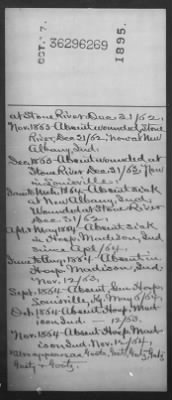 OCT. 7.
36296269
1895.
at Stone River Dec. 31/62.
Nov. 1863-Absent wounded, Stone
River, Dec 31/62. now at New
Albany, Ind.
Dec. 1863-Absent wounded at
Stone River Dec 31/62. Now
in Louisville.
1864-Absent sick
at New Albany, Ind,
Wounded at Stone River
Dec. 31/62.
Apr & May 1864-Absent sick
in Hosp. Madison, Ind
since Apl/64.
June to Aug. 1864-Absent in
Hosp. Madison, Ind.
Nov. 12/63.
Sept. 1864-Absent Gen Hosp,
Louisville, Ky. May 5/64.
Oct. 1864-Absent Hosp. Mad-
ison Ind — 12/63.
Nov. 1864-Absent Hosp. Mad-
ison Ind. Nov. 12/64.